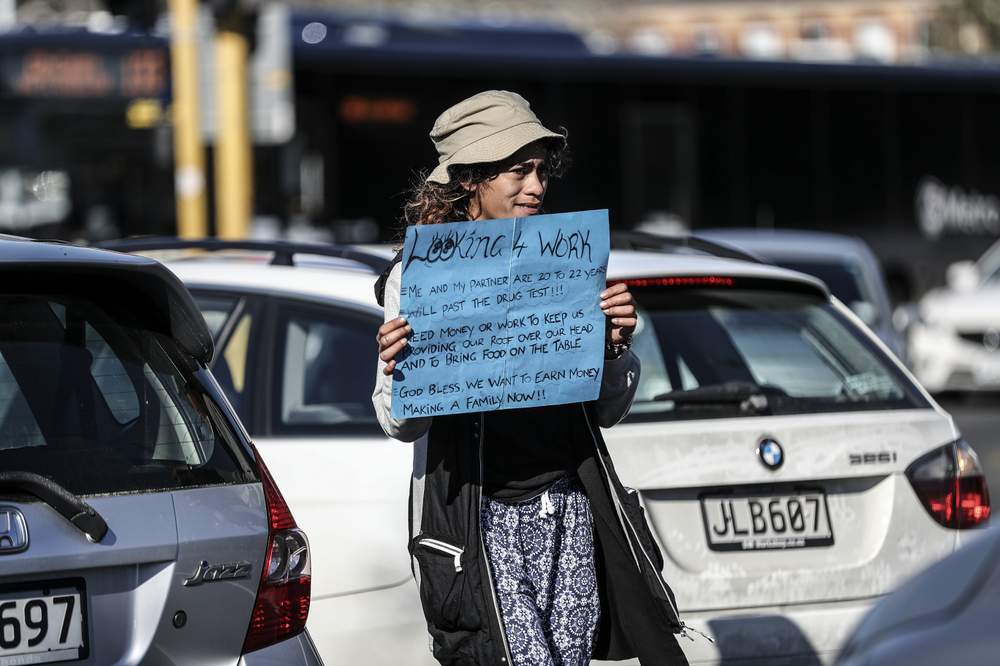 LOOKING 4 WORK
=ME AND MY PARTNER ARE 20 TO 22 YEARS
WILL PAST THE DRUG TEST!!!
NEED MONEY OR WORK TO KEEP US
PROVIDING OUR ROOF OVER OUR HEAD
AND TO BRING FOOD ON THE TABLE
=GOD BLESS, WE WANT TO EARN MONEY
MAKING A FAMILY NOW!!
Jazz
697
325i
JLB607